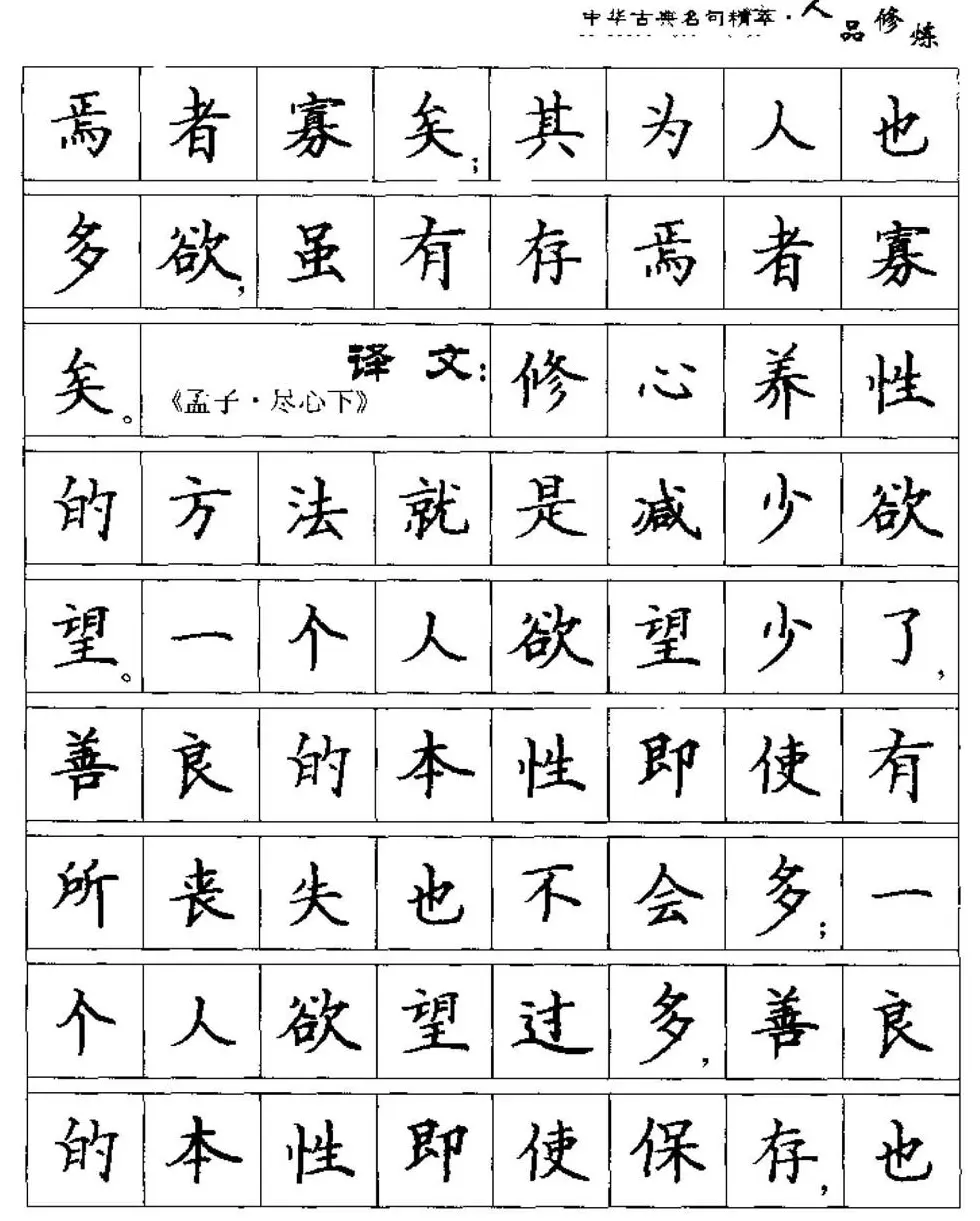 中华古典名句精萃·人品修炼
焉者寡矣;其为人也
多欲,虽有存焉者寡
矣。《孟子·尽心下》译文:修心养性
的方法就是减少欲
望。一个人欲望少了,
善良的本性即使有
所丧失也不会多;一
个人欲望过多,善良
的本性即使保存,也